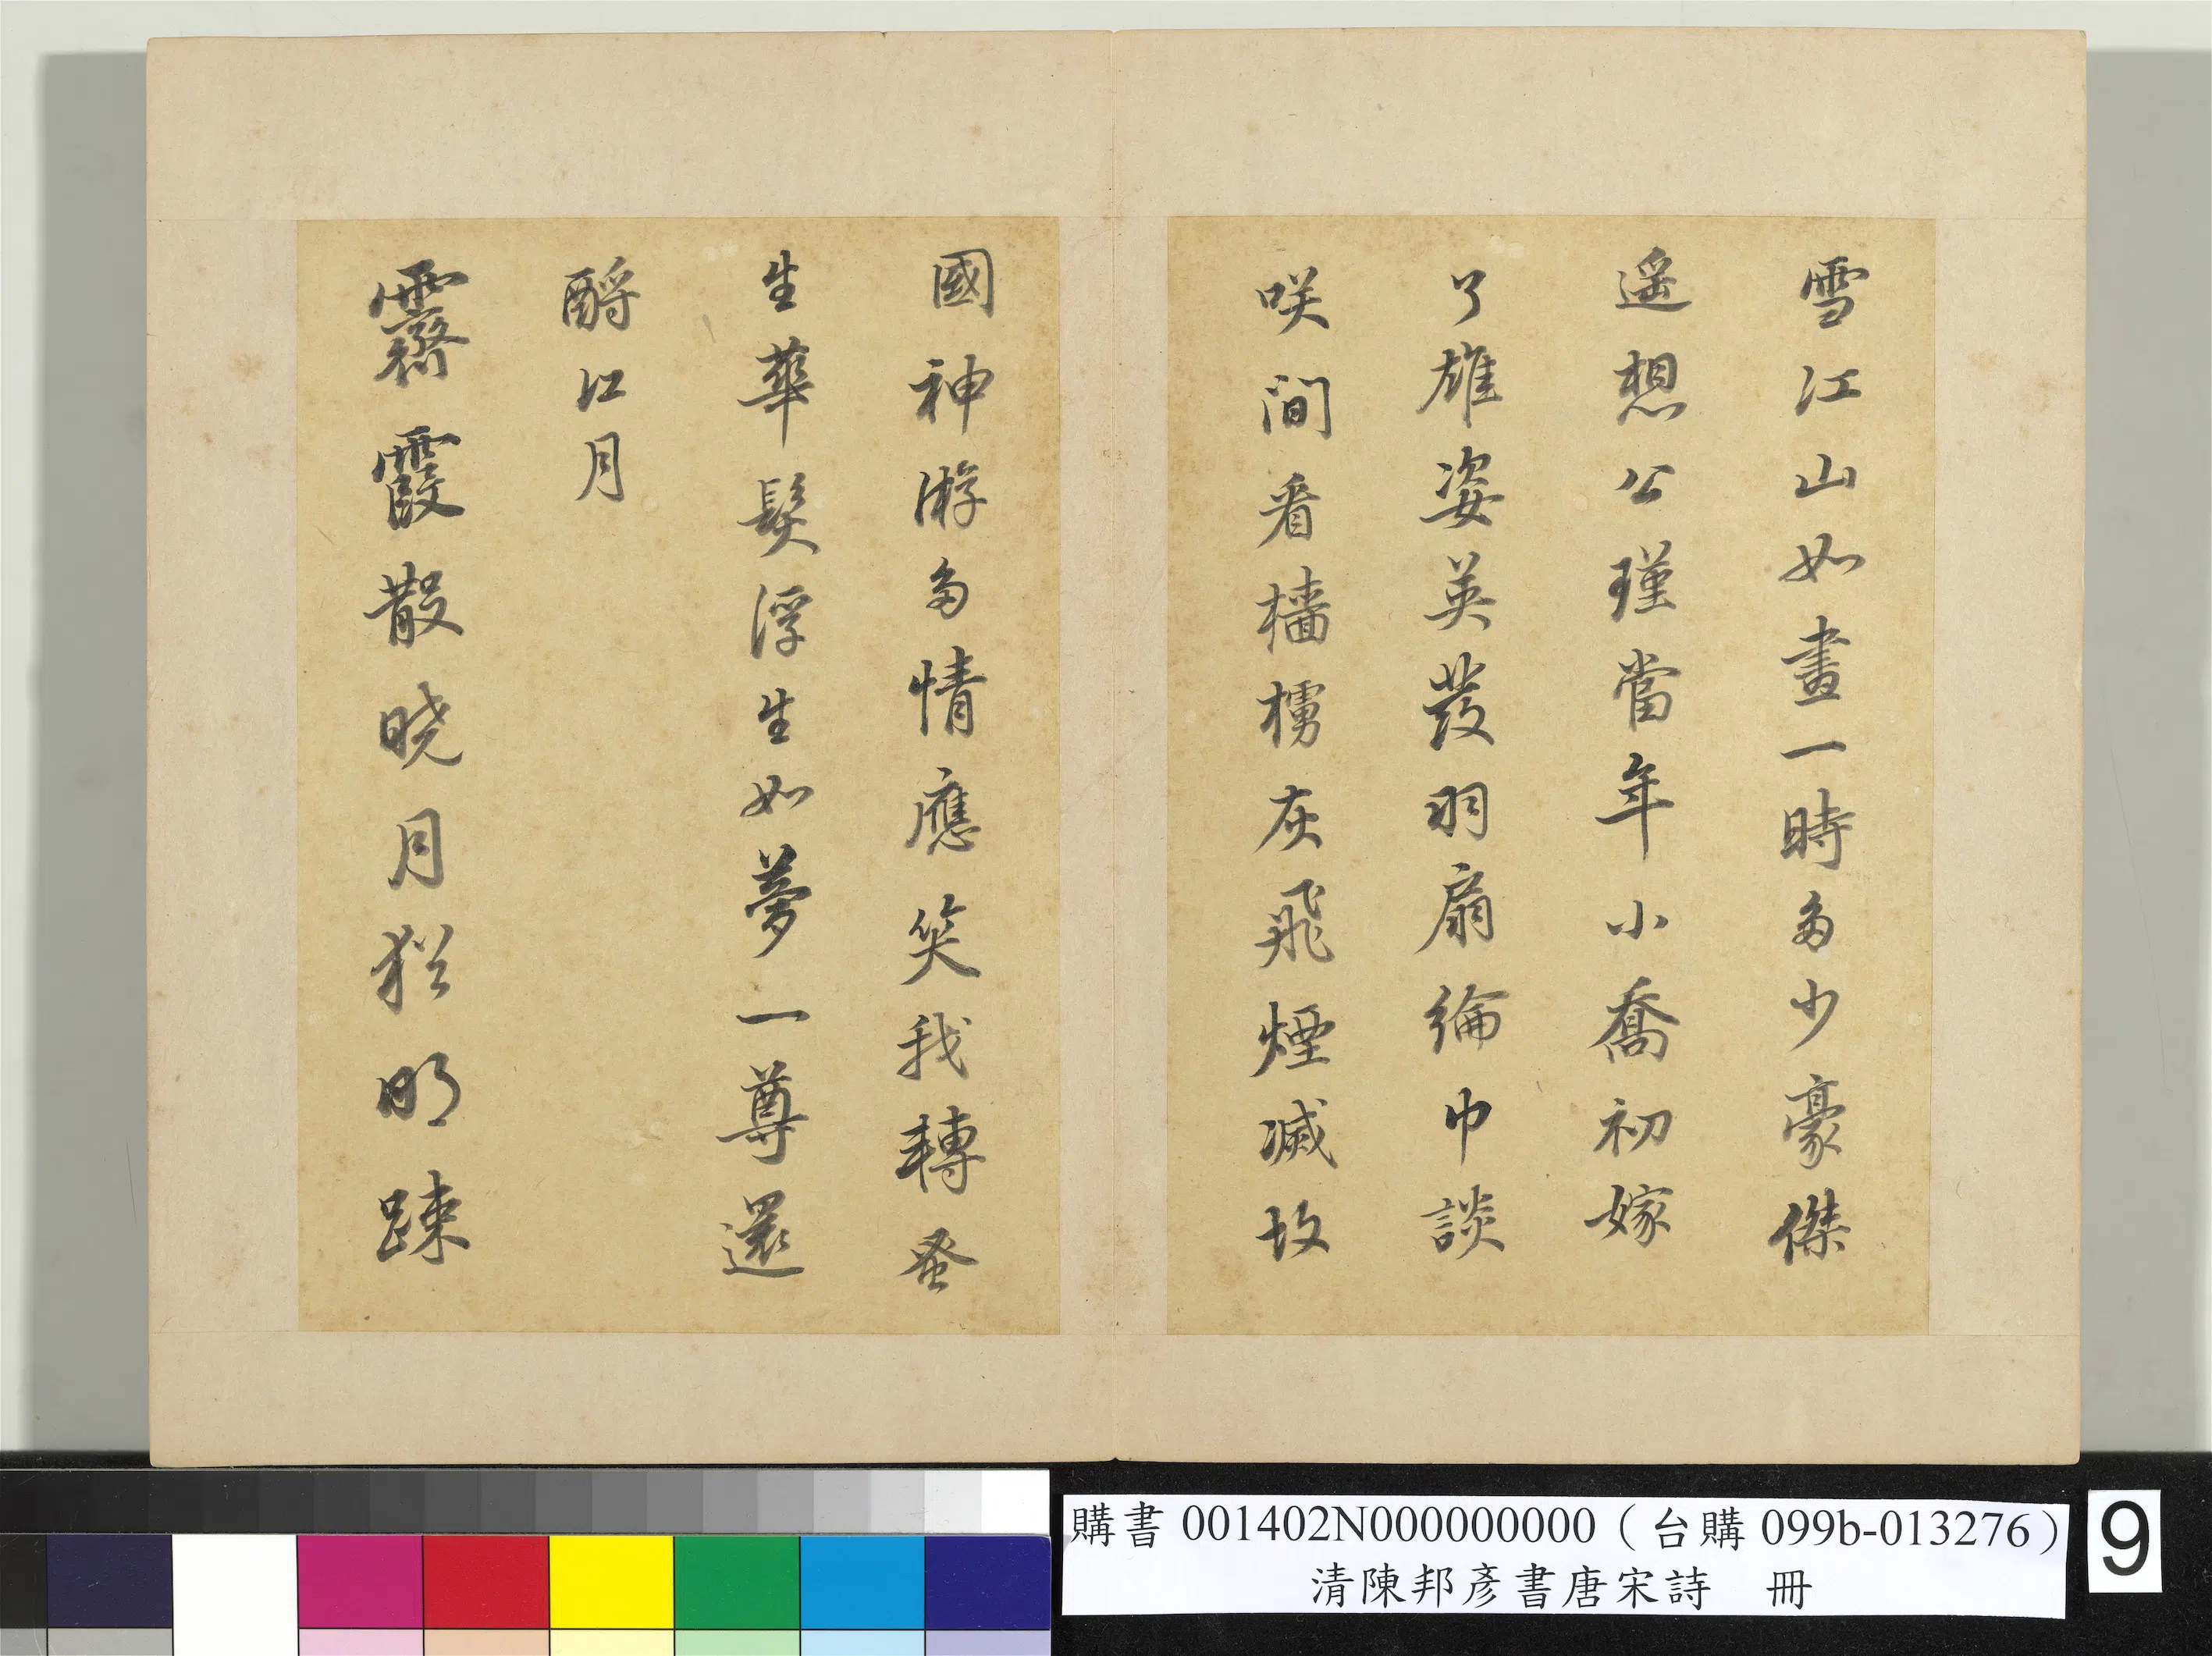 雪江山如畫一時多少豪傑
遥想公瑾當年小喬初嫁
了雄姿英發羽扇綸巾談
咲間看檣櫓灰飛煙滅故
國神游多情應笑我轉蚤
生華髮浮生如夢一尊還
酹江月
霽霞散曉月猶明疎
購書 001402N000000000（台購 099b-013276）
清陳邦彥書唐宋詩 冊
9